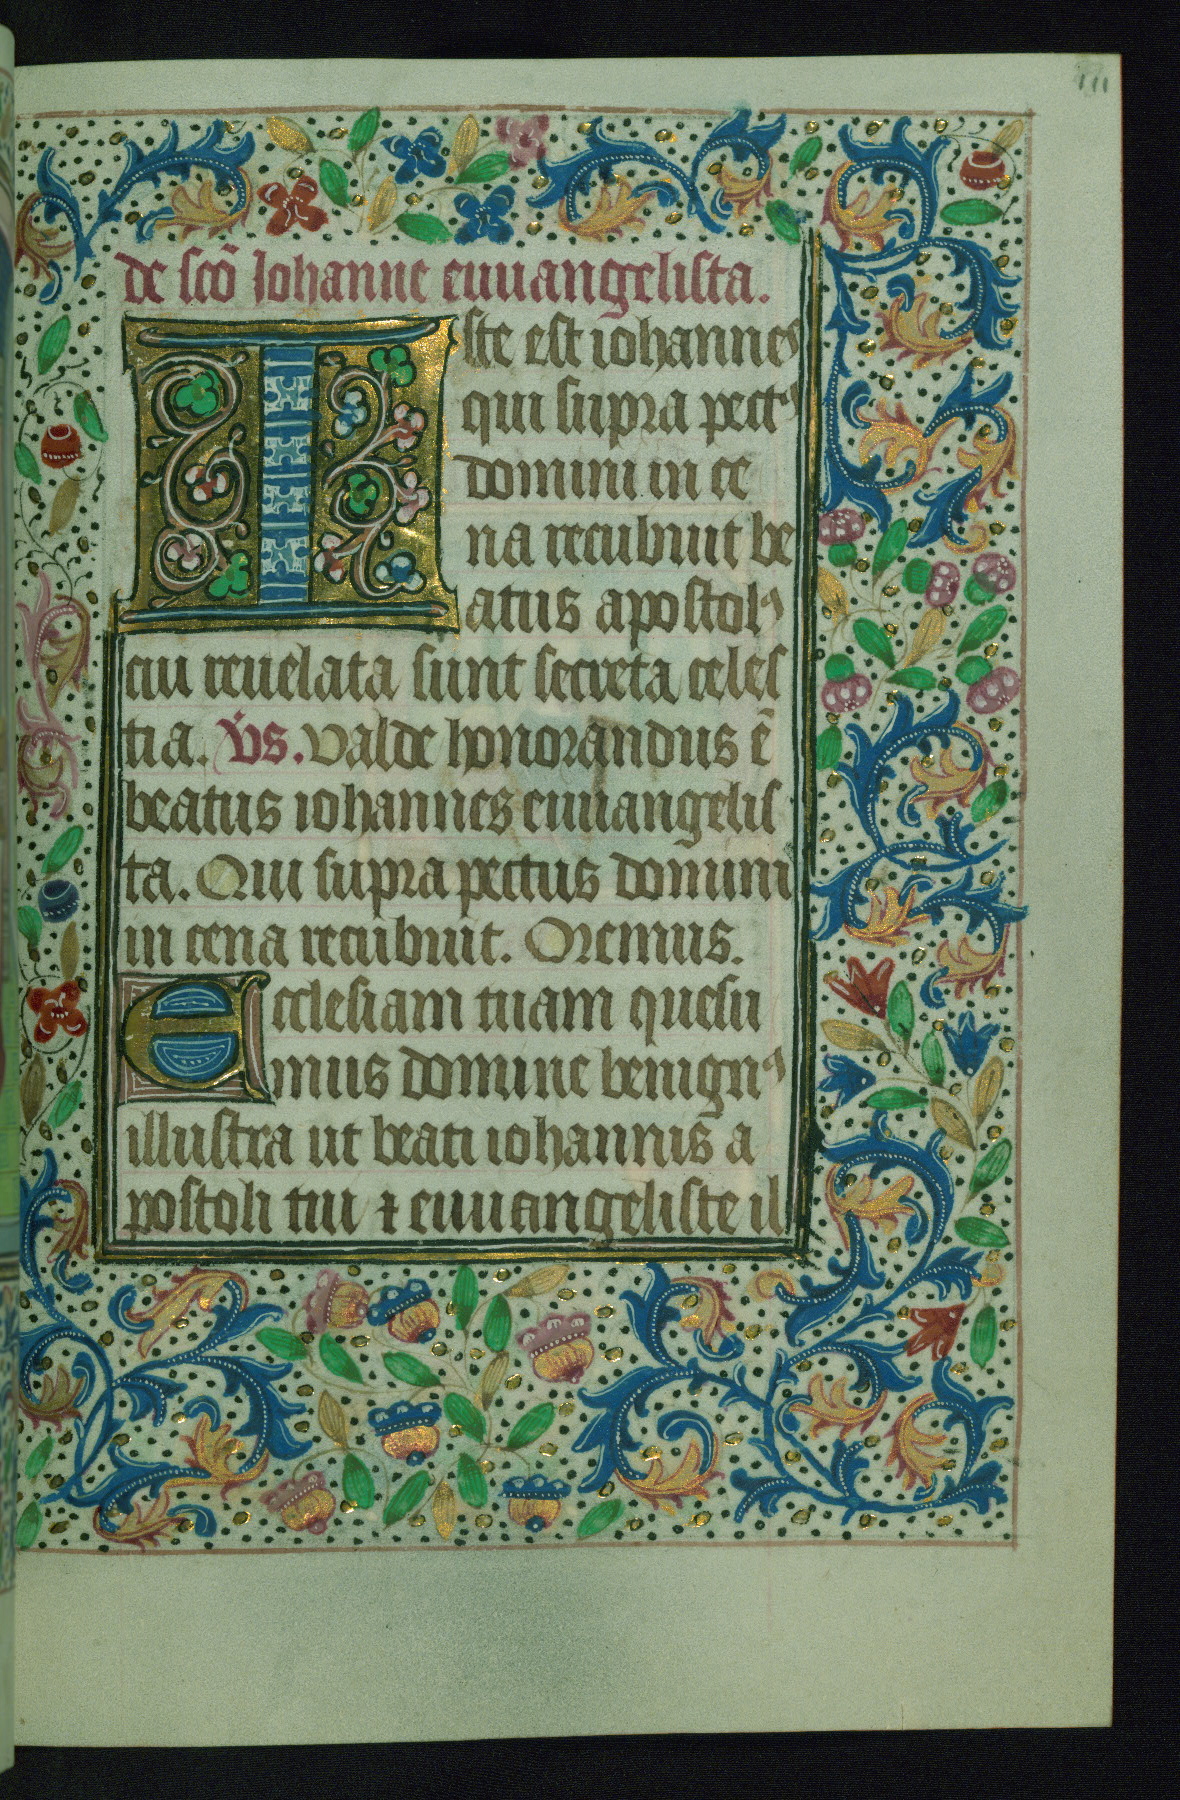 111
de scō Iohanne euuangelista.
Iste est iohannes
qui supra pectꝰ
domini in ce
na recubuit be
atus apostolꝰ
cui reuelata sunt secreta celes
tia. v̄s. Valde honorandus ē
beatus iohannes euuangelis
ta. Qui supra pectus domini
in cena recubuit. Oremus.
Ecclesiam tuam quesu
mus domine benignꝰ
illustra ut beati iohannis a
postoli tui ⁊ euuangeliste il